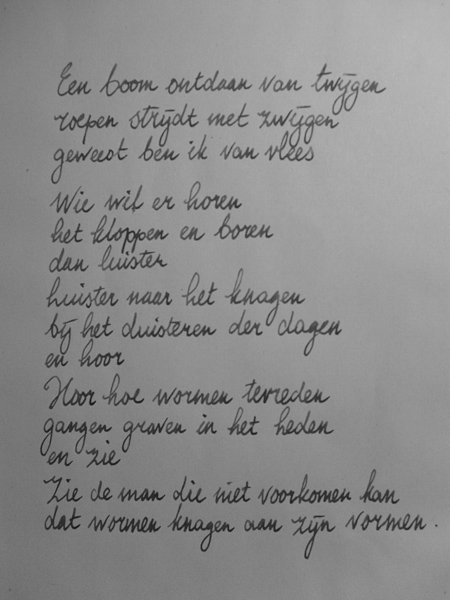 Een boom ontdaan van twijgen
roepen strijdt met zwijgen
geweest ben ik van vlees
Wie wil er horen
het kloppen en boren
dan luister
luister naar het knagen
bij het duisteren der dagen
en hoor
Hoor hoe wormen tevreden
gangen graven in het heden
en zie
Zie de man die niet voorkomen kan
dat wormen knagen aan zijn vormen.